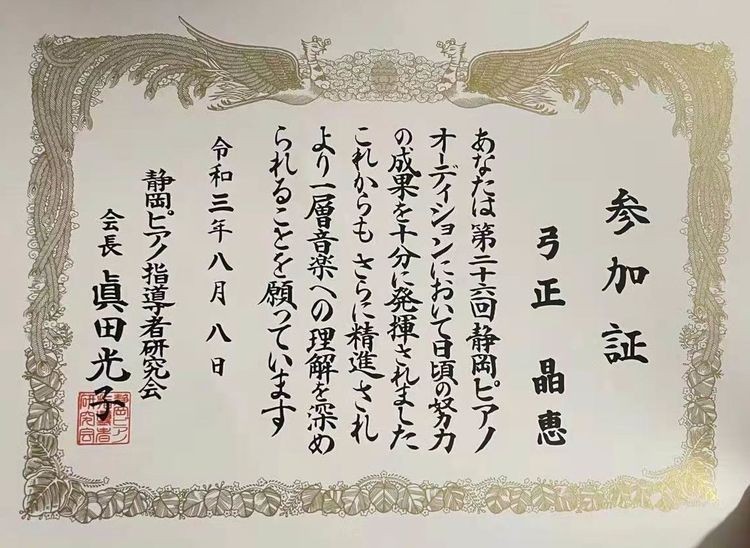 参加証
弓正 晶恵
あなたは第二十六回静岡ピアノ
オーディションにおいて日頃の努力
の成果を十分に発揮されました
これからもさらに精進され
より一層音楽への理解を深め
られることを願っています
令和三年八月八日
静岡ピアノ指導者研究会
会長 眞田光子